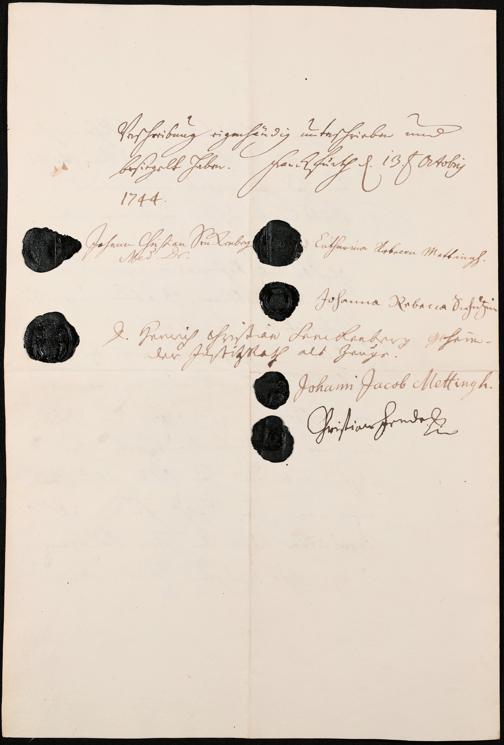 Verschreibung eigenhändig unterschrieben und
besiegelt haben. Franckfurth d. 13t Octobris
1744.
Johann Christian Senckenberg
Med. Dr.
Catharina Rebecca Mettingh.
Johanna Rebecca
D. Henrich Christian Senckenberg geheim-
der Justizrath als Zeuge.
Johann Jacob Mettingh.
Christian